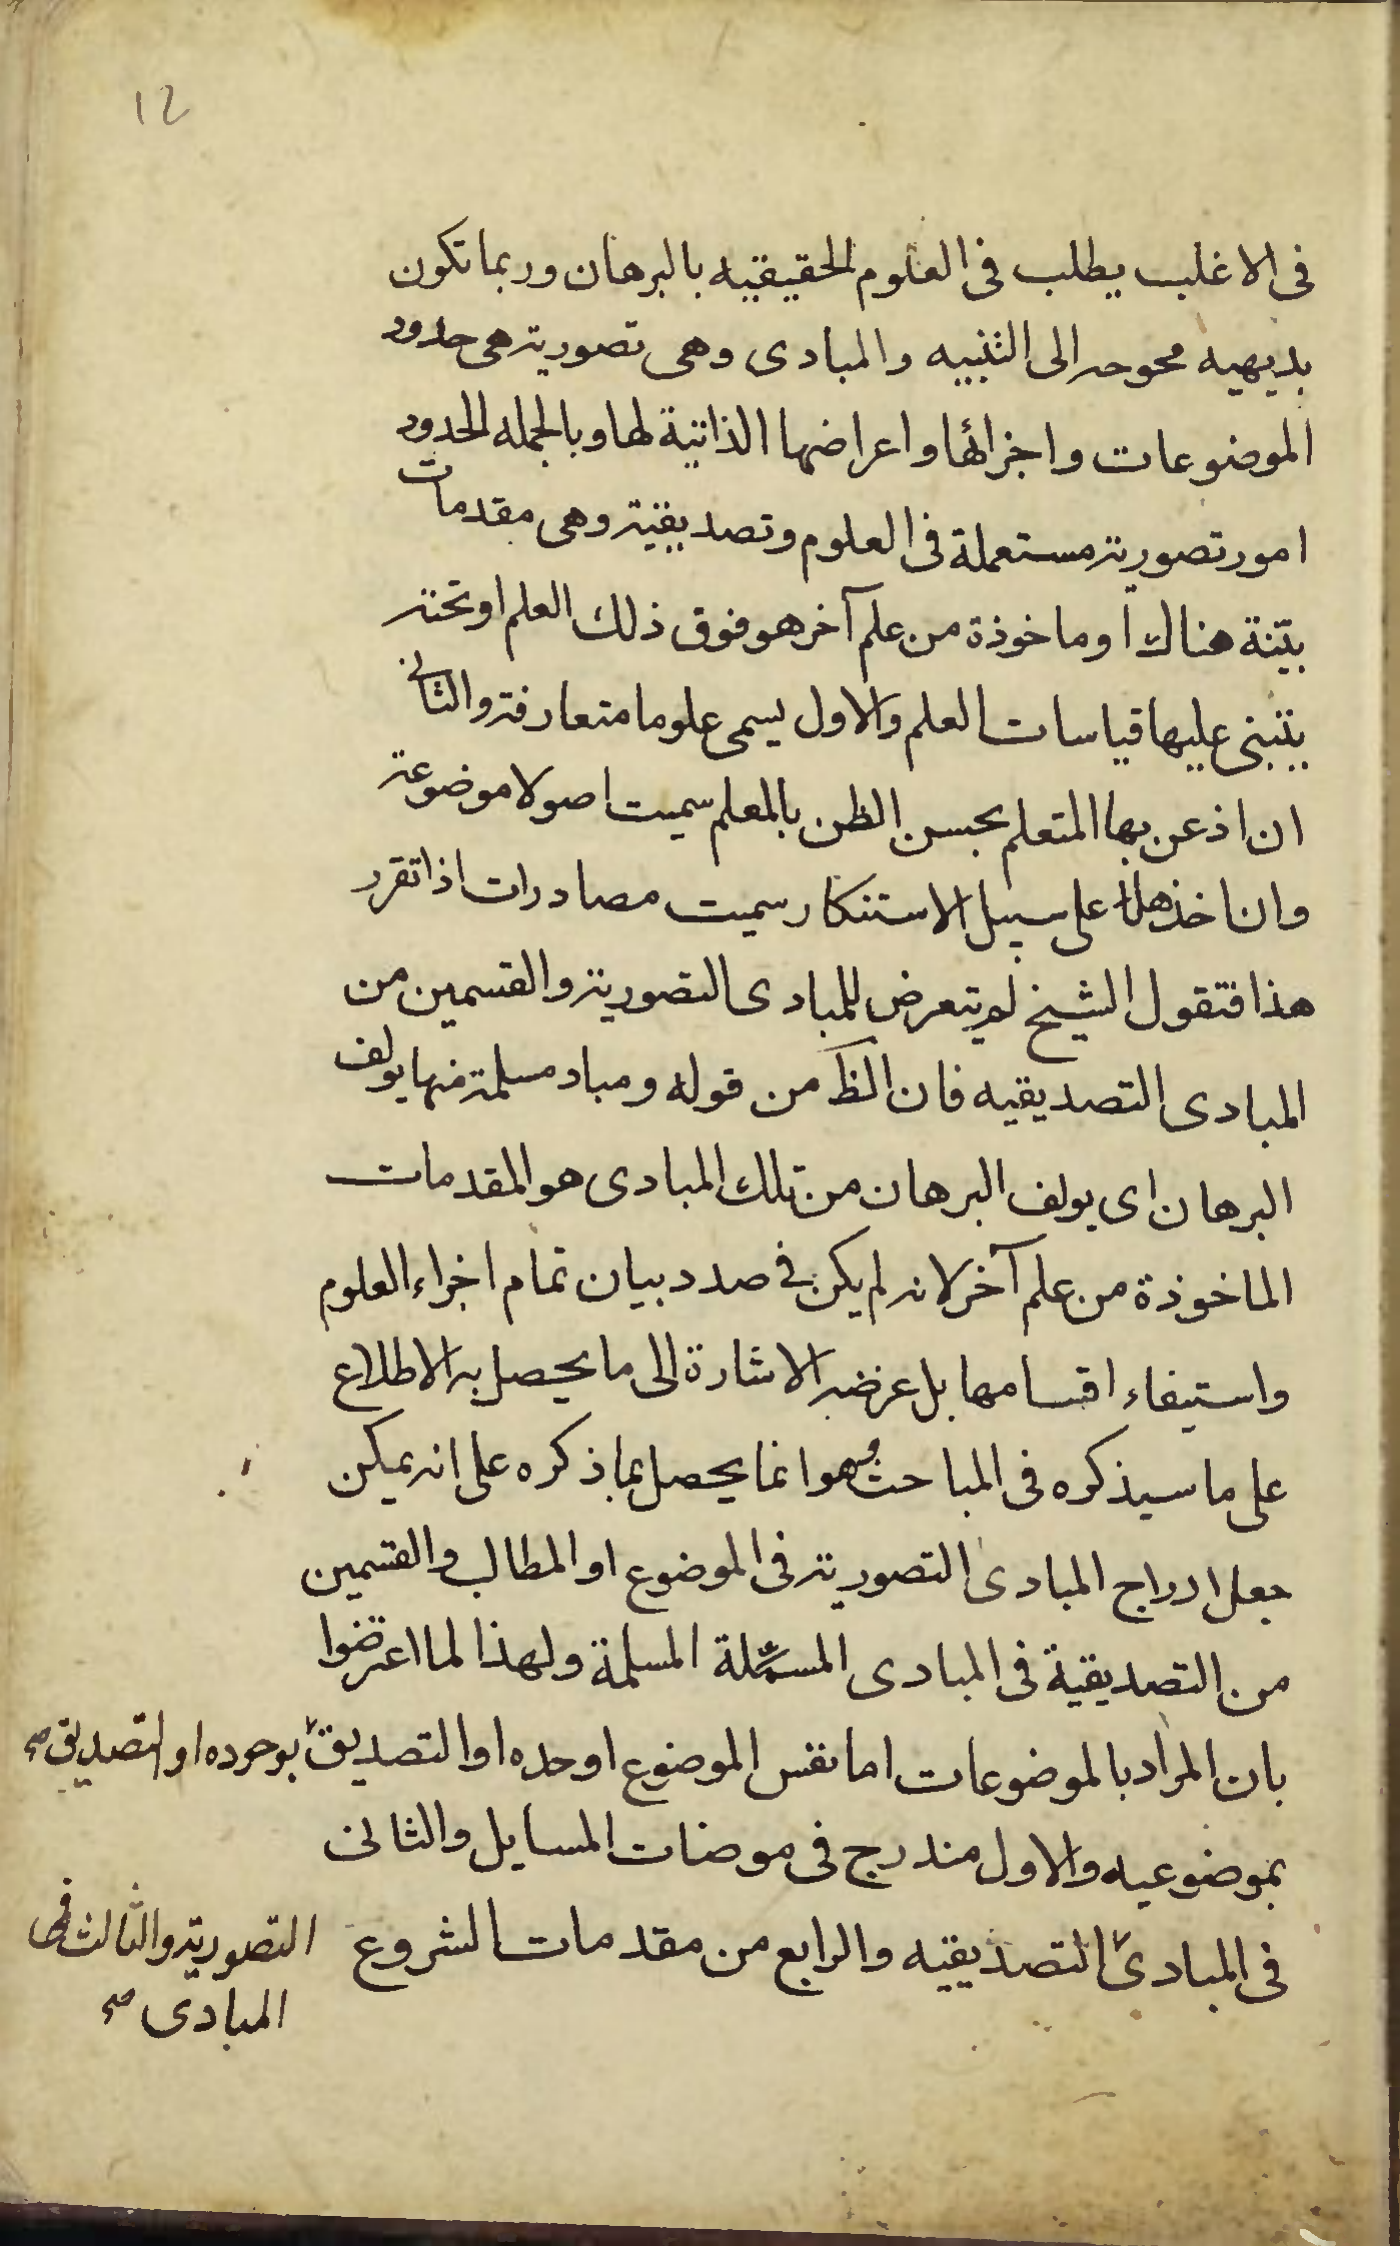 12
فى الاغلب يطلب فى العلوم الحقيقيه بالبرهان وربما تكون
بديهيه محوجه الى التنبيه والمبادى وهى تصورية هى حدود
الموضوعات واجزائها واعراضها الذاتية لها وبالجمله الحدود
امور تصورية مستعملة فى العلوم وتصديقية وهى مقدمات
بيّنة هناك او ماخوذة من علم آخر هو فوق ذلك العلم او تحته
يتبنى عليها قياسات العلم والاول يسمى علوما متعارفة والثانى
ان اذعن بها المتعلم بحسن الظن بالمعلم سميت اصولا موضوعة
وان اخذها على سبيل الاستنكار سميت مصادرات اذا تقرر
هذا فتقول الشيخ لم يتعرض للمبادى التصورية والقسمين من
المبادى التصديقيه فان الظ من قوله ومباد مسلمة منها يولف
البرهان اى يولف البرهان من تلك المبادى هو المقدمات
الماخوذة من علم آخر لانه لم يكن فى صدد بيان تمام اجزاء العلوم
واستيفاء اقسامها بل غرضه الاشارة الى ما يحصل به الاطلاع
على ما سيذكره فى المباحث وهو انما يحصل بما ذكره على انه يمكن
جعل ادراج المبادى التصورية فى الموضوع او المطالب والقسمين
من التصديقية فى المبادى المسلمة ولهذا لما اعترضوا
بان المراد بالموضوعات اما نفس الموضوع او حده او التصديق بوجوده او التصديق صح
بموضوعيه والاول مندرج فى موضات المسايل والثانى
فى المبادى التصديقيه والرابع من مقدمات الشروع
التصورية والثالث فى
المبادى صح